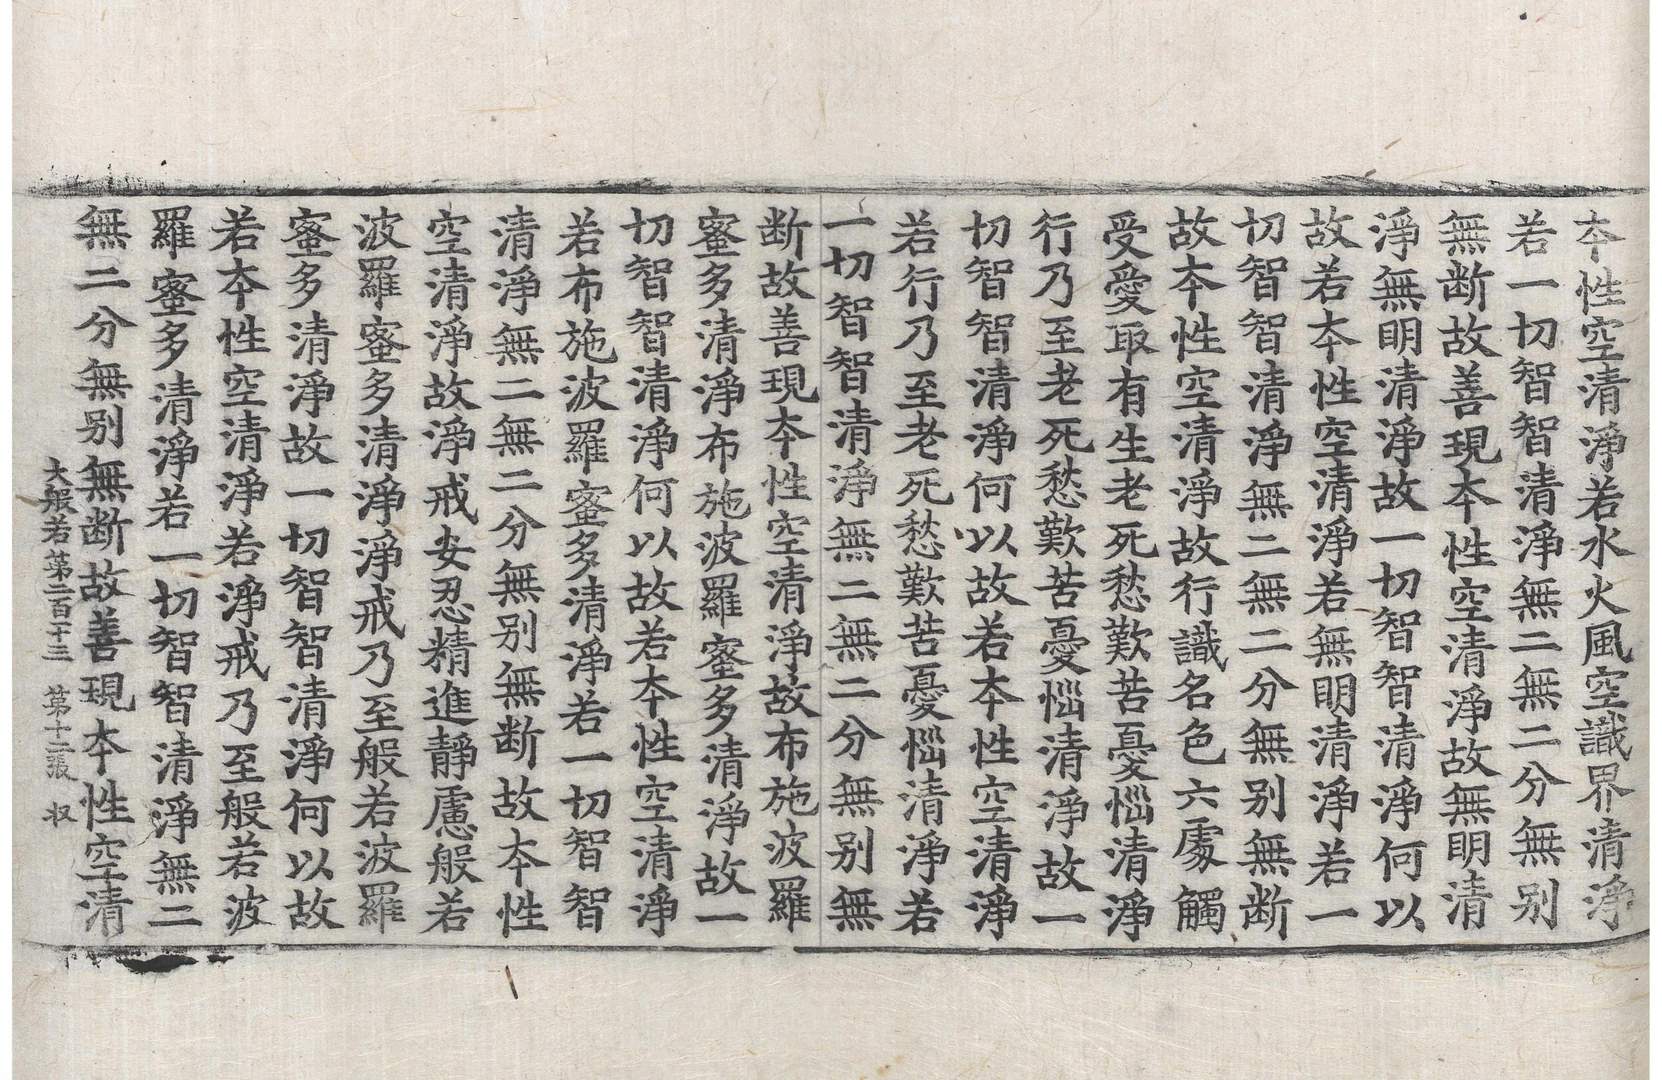 夲性空清淨若水火風空識界清淨
若一切智智清淨無二無二分無别
無断故善現夲性空清淨故無明清
淨無明清淨故一切智智清淨何以
故若夲性空清淨若無明清淨若一
切智智清淨無二無二分無别無断
故夲性空清淨故行識名色六處觸
受愛取有生老死愁歎苦憂惱清淨
行乃至老死愁歎苦憂惱清淨故一
切智智清淨何以故若夲性空清淨
若行乃至老死愁歎苦憂惱清淨若
一切智智清淨無二無二分無别無
断故善現夲性空清淨故布施波羅
蜜多清淨布施波羅蜜多清淨故一
切智智清淨何以故若夲性空清淨
若布施波羅蜜多清淨若一切智智
清淨無二無二分無别無断故夲性
空清淨故淨戒安忍精進靜慮般若
波羅蜜多清淨淨戒乃至般若波羅
蜜多清淨故一切智智清淨何以故
若夲性空清淨若淨戒乃至般若波
羅蜜多清淨若一切智智清淨無二
無二分無别無断故善現夲性空清
大般若第二百十三 第十二張 収